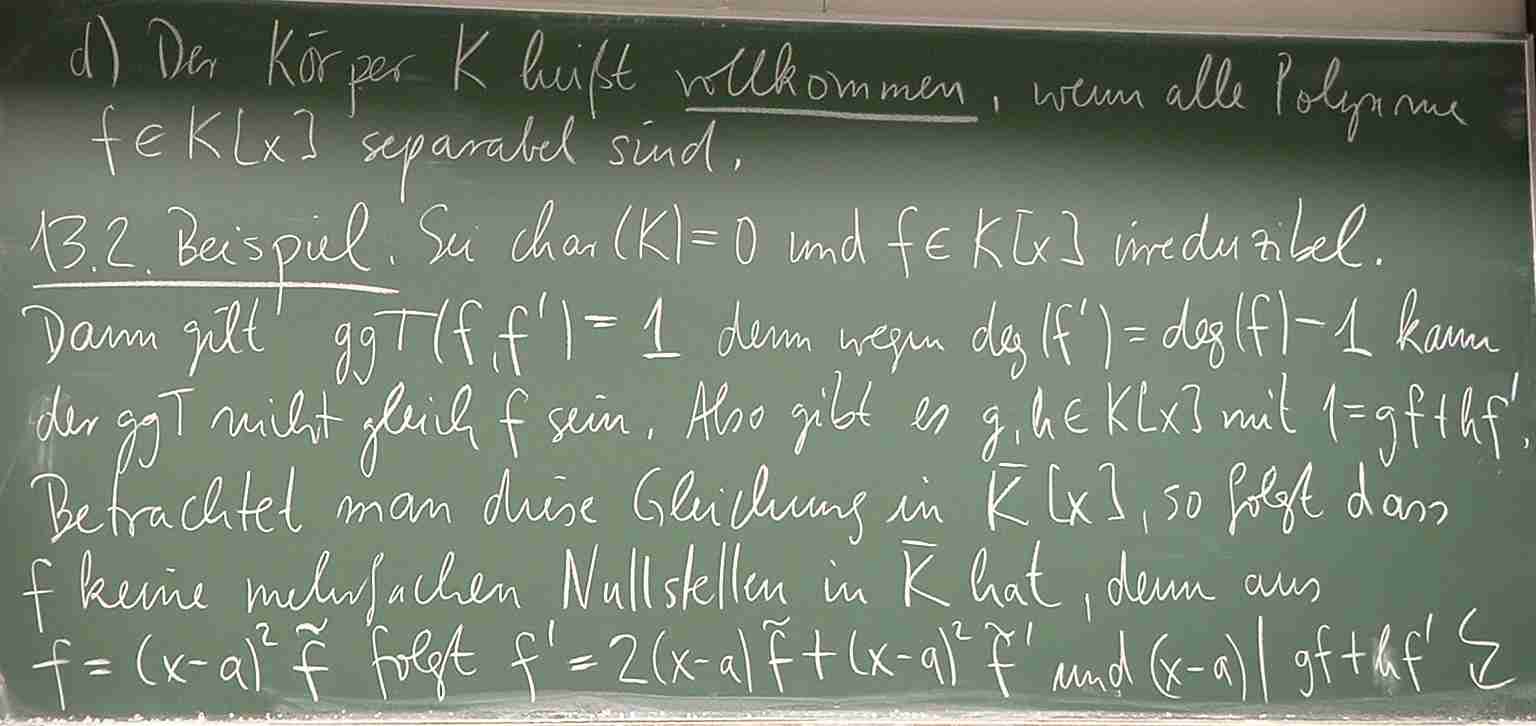 d) Der Körper K heißt vollkommen, wenn alle Polynome
f ∈ K[x] separabel sind.
13.2. Beispiel. Sei char(K) = 0 und f ∈ K[x] irreduzibel.
Dann gilt ggT(f, f') = 1 denn wegen deg(f') = deg(f) - 1 kann
der ggT nicht gleich f sein. Also gibt es g, h ∈ K[x] mit 1 = gf + hf'.
Betrachtet man diese Gleichung in K̄[x], so folgt dass
f keine mehrfachen Nullstellen in K̄ hat, denn aus
f = (x-a)² f̃ folgt f' = 2(x-a) f̃ + (x-a)² f̃' und (x-a) | gf + hf' ↯